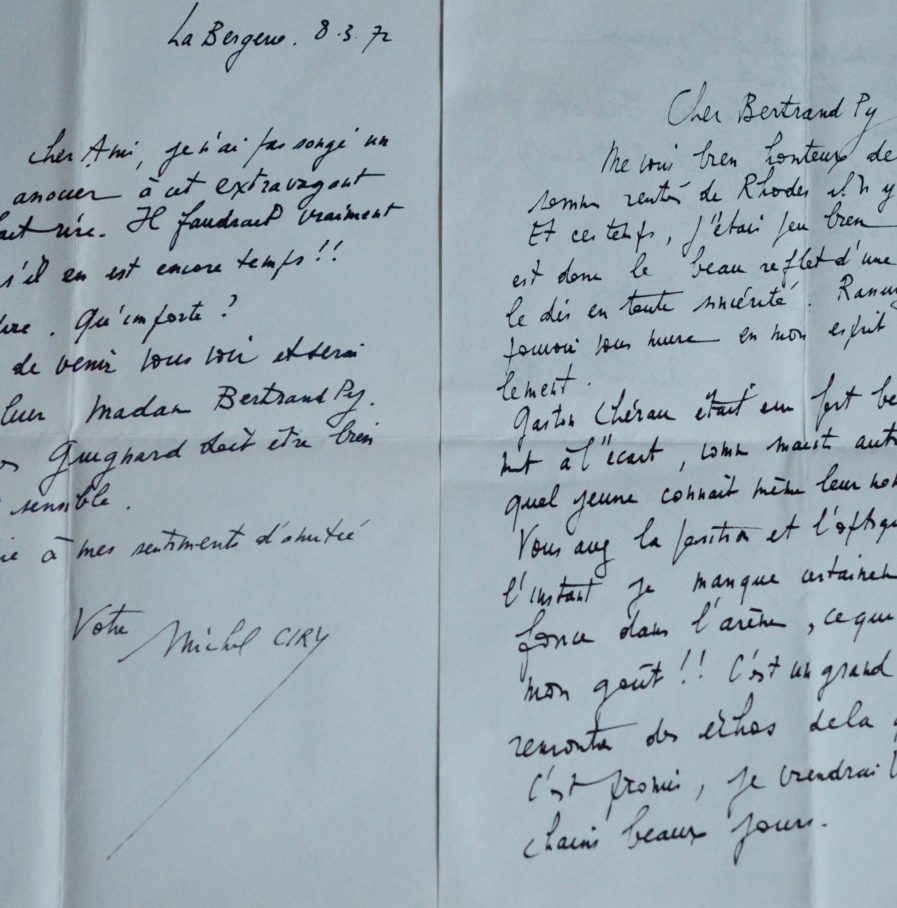 La Bergerie. 8.3.72
Cher Ami, je n'ai pas songé un
à cet extravagant
rire. Il faudrait vraiment
s'il en est encore temps!!
Qu'importe?
de venir vous voir et serai
Madame Bertrand Py.
Guignard doit être bien
sensible.
à mes sentiments d'amitié
Votre
Michel CIRY
Cher Bertrand Py
Me voici bien honteux de
rentrés de Rhodes il n'y
Et ces temps, j'étais peu bien
est donc le beau reflet d'une
le dis en toute sincérité.
pouvoir vous en mon esprit
lement.
Gaston Chérau était un fort be
mt à l'écart, comme maints autr
quel jeune connait même leur nom
Vous avez la position et l'optiqu
l'instant je manque certainem
force dans l'arène, ce que
mon goût!! C'est un grand
remonter des échos de la
C'est promis, je viendrai
chains beaux jours.